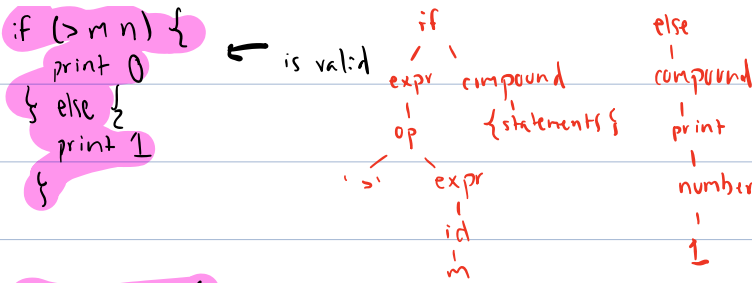 if (> m n) {
print 0
} else {
print 1
}
← is valid
if
expr compound
op {statements{
'>' expr
id
m
else
compound
print
number
1